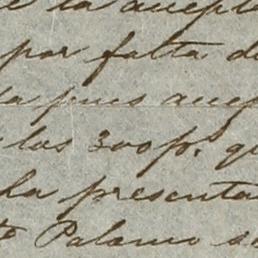 e la acepta
por falta de
la pues acep
los 300 p.s qu
la presenta
Palomo se